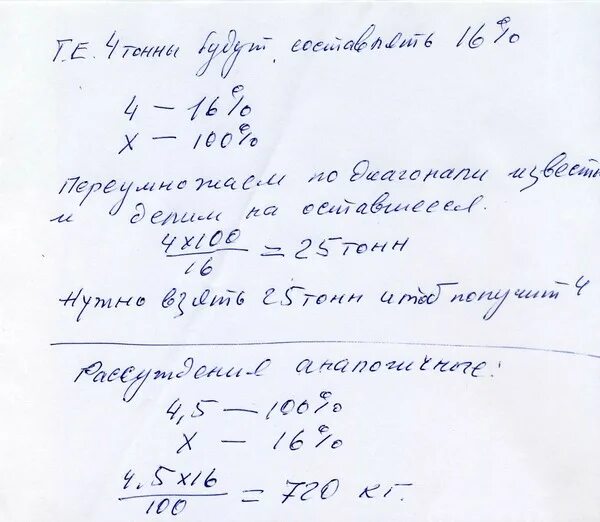 Т.Е. 4 тонны будут составлять 16%
4 — 16%
х — 100%
Перемножаем по диагонали извест
и делим на оставшееся.
4х100
/16 = 25 тонн
Нужно взять 25 тонн чтоб получит 4
Рассуждения аналогичные:
4,5 — 100%
х — 16%
4,5х16
/100 = 720 кг.